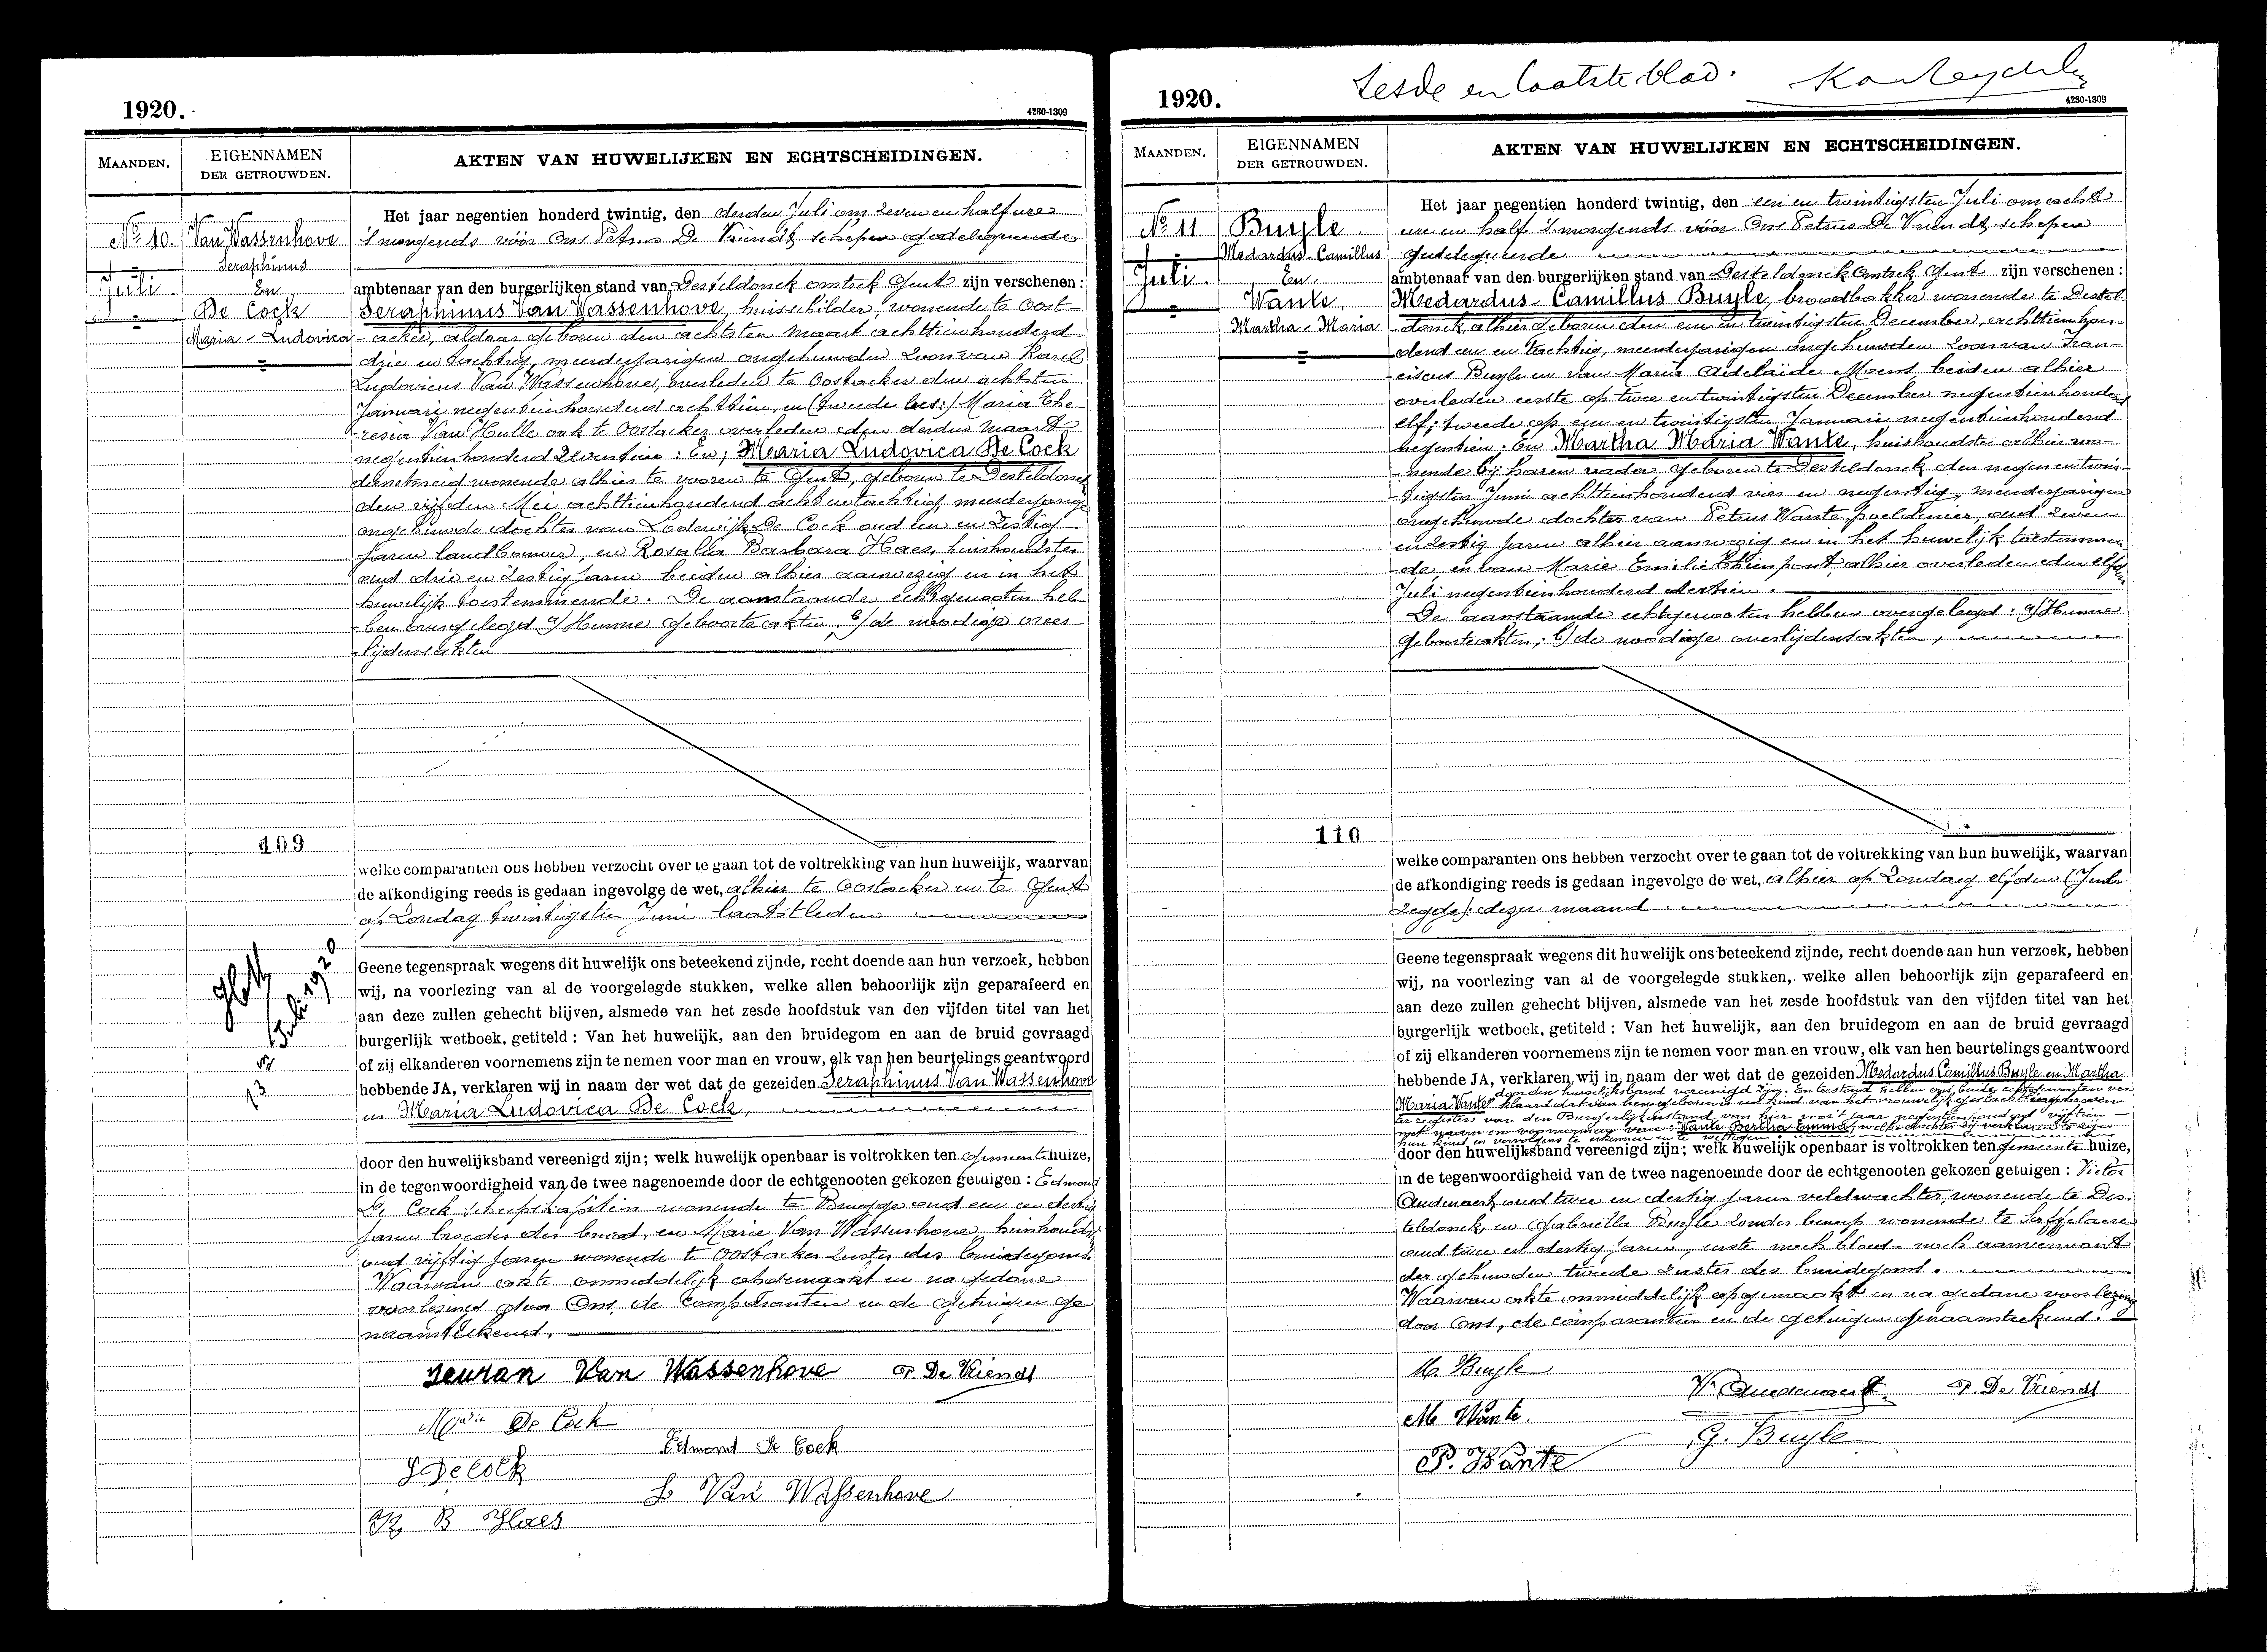 1920.
4280-1309
MAANDEN.
EIGENNAMEN
DER GETROUWDEN.
AKTEN VAN HUWELIJKEN EN ECHTSCHEIDINGEN.
No 10.
Juli
Van Wassenhove
Seraphinus
En
De Cock
Maria - Ludovica
Het jaar negentien honderd twintig, den derden Juli om zeven en half ure
's morgends vóór Ons Petrus De Vriendt, schepen gedelegueerde
ambtenaar van den burgerlijken stand van Desteldonck omtrek Gent zijn verschenen:
Seraphinus Van Wassenhove, huisschilder, wonende te Oost-
-acker, aldaar geboren den achtsten Maart achttienhonderd
drie en tachtig, meerderjarigen ongehuwden zoon van Karel
Ludovicus Van Wassenhove, overleden te Oostacker den achtsten
Januari negentienhonderd achttien, en (tweede bed:) Maria The-
-resia Van Hulle ook te Oostacker overleden den derden Maart
negentienhonderd zeventien: En; Maria Ludovica De Cock
dienstmeid wonende alhier te voren te Gent, geboren te Desteldonck
den vijfden Mei achttienhonderd acht en tachtig, meerderjarige
ongehuwde dochter van Lodewijk De Cock oud een en zestig
jaren landbouwer, en Rosalia Barbara Haes, huishoudster
oud drie en zestig jaren beiden alhier aanwezig en in het
huwelijk toestemmende. De aanstaande echtgenooten heb-
-ben overgelegd a/ Hunne geboorteakten, b/ de noodige over-
-lijdensakten
109
welke comparanten ons hebben verzocht over te gaan tot de voltrekking van hun huwelijk, waarvan
de afkondiging reeds is gedaan ingevolge de wet, alhier te Oostacker en te Gent
op Zondag twintigsten Juni laatstleden
Juli 1920
13
Geene tegenspraak wegens dit huwelijk ons beteekend zijnde, recht doende aan hun verzoek, hebben
wij, na voorlezing van al de voorgelegde stukken, welke allen behoorlijk zijn geparafeerd en
aan deze zullen gehecht blijven, alsmede van het zesde hoofdstuk van den vijfden titel van het
burgerlijk wetboek, getiteld: Van het huwelijk, aan den bruidegom en aan de bruid gevraagd
of zij elkanderen voornemens zijn te nemen voor man en vrouw, elk van hen beurtelings geantwoord
hebbende JA, verklaren wij in naam der wet dat de gezeiden Seraphinus Van Wassenhove
en Maria Ludovica De Cock,
door den huwelijksband vereenigd zijn; welk huwelijk openbaar is voltrokken ten Gemeentehuize,
in de tegenwoordigheid van de twee nagenoemde door de echtgenooten gekozen getuigen: Edmond
De Cock scheepskapitein wonende te Brugge oud een en dertig
jaren broeder der bruid, en Marie Van Wassenhove, huishoudster
oud vijftig jaren wonende te Oostacker zuster des bruidegoms.
Waarvan akte onmiddelijk opgemaakt en na gedane
voorlezing door Ons, de Comparanten en de getuigen ge-
naamteekend.
Van Wassenhove
P. De Vriendt
Marie De Cock
Edmond De Cock
L De Cock
Van Wassenhove
R B Haes
Zesde en laatste blad.
1920.
4280-1309
MAANDEN.
EIGENNAMEN
DER GETROUWDEN.
AKTEN VAN HUWELIJKEN EN ECHTSCHEIDINGEN.
No 11
Juli.
Buyle
Medardus-Camillus
En
Wante,
Martha-Maria
Het jaar negentien honderd twintig, den een en twintigsten Juli om acht
ure en half 's morgends vóór Ons Petrus De Vriendt, schepen
gedelegueerde
ambtenaar van den burgerlijken stand van Desteldonck omtrek Gent zijn verschenen:
Medardus-Camillus Buyle, broodbakker wonende te Destel-
-donck, alhier geboren den een en twintigsten December, achttienhon-
-derd een en tachtig, meerderjarigen ongehuwden zoon van Fran-
-ciscus Buyle en van Maria Adelaïde Maent, beiden alhier
overleden eerste op twee en twintigsten December negentienhonderd
elf; tweede op een en twintigsten Januari negentienhonderd
negentien: En Martha Maria Wante, huishoudster alhier wo-
-nende bij haren vader geboren te Desteldonck den negen en twin-
-tigsten Juni achttienhonderd vier en negentig, meerderjarigen
ongehuwde dochter van Petrus Wante poeldenier, oud zeven
en zestig jaren alhier aanwezig en in het huwelijk toestemmen-
-de, en van Marie Emilie Thienpont alhier overleden den elfden
Juli negentienhonderd dertien.
De aanstaande echtgenooten hebben overgelegd: a/ Hunne
geboorteakten; b/ de noodige overlijdensakten,
110
welke comparanten ons hebben verzocht over te gaan tot de voltrekking van hun huwelijk, waarvan
de afkondiging reeds is gedaan ingevolge de wet, alhier op Zondag elfden
dezer maand
Geene tegenspraak wegens dit huwelijk ons beteekend zijnde, recht doende aan hun verzoek, hebben
wij, na voorlezing van al de voorgelegde stukken, welke allen behoorlijk zijn geparafeerd en
aan deze zullen gehecht blijven, alsmede van het zesde hoofdstuk van den vijfden titel van het
burgerlijk wetboek, getiteld: Van het huwelijk, aan den bruidegom en aan de bruid gevraagd
of zij elkanderen voornemens zijn te nemen voor man en vrouw, elk van hen beurtelings geantwoord
hebbende JA, verklaren wij in naam der wet dat de gezeiden Medardus Camillus Buyle en Martha
door den huwelijksband vereenigd zijn. En terstond hebben ons beide echtgenooten ver-
Maria Wante klaard dat van hen geboren is een kind van het vrouwelijk geslacht ingeschreven
ter registers van den Burgerlijkenstand van hier voor 't jaar negentienhonderd vijftien
met naam en voornaam van: Wante Bertha Emma; welke dochter zij verklaren te zijn
hun kind en vervolgens te erkennen en te wettigen
door den huwelijksband vereenigd zijn; welk huwelijk openbaar is voltrokken ten gemeente huize,
in de tegenwoordigheid van de twee nagenoemde door de echtgenooten gekozen getuigen: Victor
Audenaert, oud twee en dertig jaren veldwachter, wonende te Des-
teldonck, en Gabriella Buyle zonder beroep wonende te Saffelaere
oud twee en dertig jaren, eerste noch bloed- noch aanverwant
der gehuwden tweede zuster des bruidegoms.
Waarvan akte onmiddelijk opgemaakt en na gedane voorlezing
door Ons, de comparanten en de getuigen genaamteekend.
M. Buyle
V. Audenaert.
P. De Vriendt
M. Wante.
G. Buyle
P. Wante